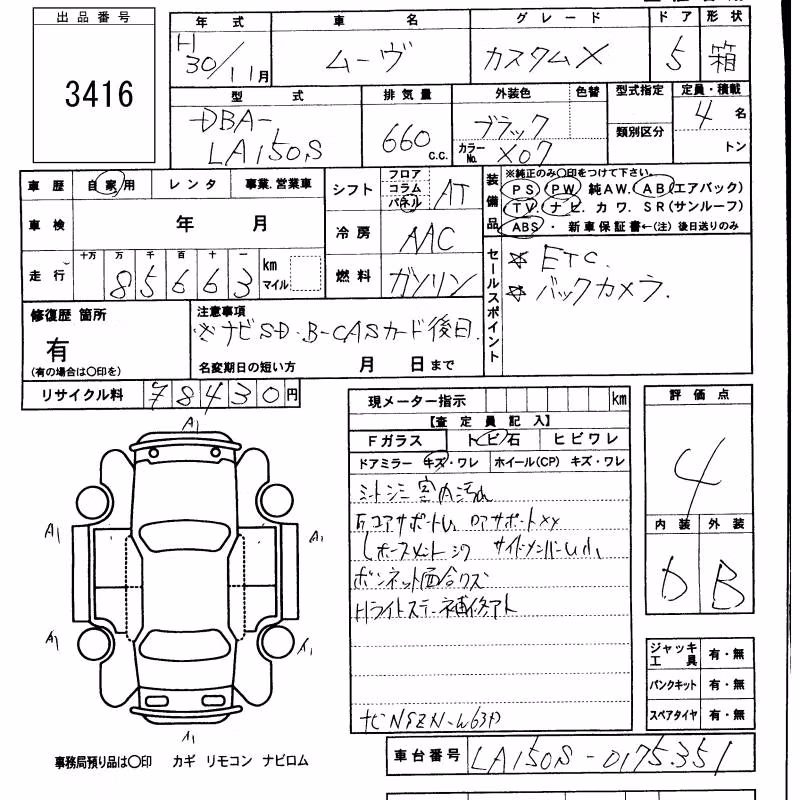 出品番号
3416
年式 車名 グレード ドア 形状
H
30/11月 ムーヴ カスタムX 5 箱
型式 排気量 外装色 色替 型式指定 定員・積載
DBA- 660 ブラック 4名
LA150S c.c. カラーNo. X07 類別区分 トン
車歴 自家用 レンタ 事業.営業車
シフト フロア コラム パネル AT
装備品
※純正のみ〇印をつけて下さい。
PS PW 純AW. AB(エアバック)
TV. ナビ. カワ. SR(サンルーフ)
ABS ・ 新車保証書←(注)後日送りのみ
車検 年 月
冷房 AAC
走行 十万 万 千 百 十 一
85663 km マイル
燃料 ガソリン
セールスポイント
☆ ETC.
☆ バックカメラ.
修復歴 箇所
有
(有の場合は〇印を)
注意事項
※ナビSD.B-CASカード後日.
名変期日の短い方 月 日まで
リサイクル料 78430円
現メーター指示 km
【査定員記入】
Fガラス トビ石 ヒビワレ
ドアミラー キズ・ワレ ホイール(CP) キズ・ワレ
室内汚れ
コアサポート
ボンネット
Hライトステー補修アト
NSZN-W63D
評価点
4
内装 外装
D B
ジャッキ工具 有・無
パンクキット 有・無
スペアタイヤ 有・無
A1
A1 A1
A1 A1
A1
事務局預り品は〇印 カギ リモコン ナビロム
車台番号 LA150S-0175351